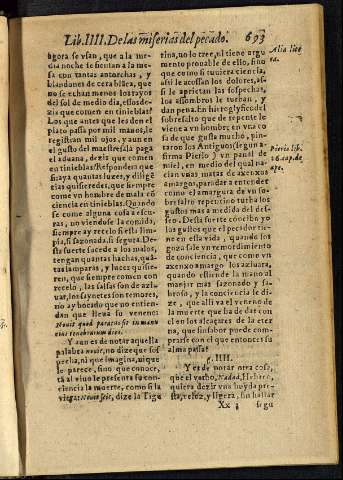 Lib. IIII. De las miserias del pecado. 693
agora se vsan, que a la me-
dia noche se sientan a la me-
sa con tantas antorchas, y
blandones de cera blãca, que
no se echan menos los rayos
del sol de medio dia, essos de-
zis que comen en tinieblas?
Los que antes que les den el
plato passa por mil manos, le
registran mil ojos, y aun en
el gusto del maestresala paga
el aduana, dezis que comen
en tinieblas? Respondera que
si aya quantas luzes, y diligẽ-
cias quisieredes, que siempre
come vn hombre de mala cõ-
ciencia en tinieblas. Quando
se come alguna cosa a escu-
ras, no viendose la comida,
siempre ay recelo si esta lim-
pia, si sazonada, si segura. Des-
ta suerte sucede a los malos,
tengan quantas hachas, quã-
tas lamparas, y luzes quisie-
ren, que siempre comen con
recelo, las salsas son de azi-
uar, los saynetes son temores,
no ay bocado que no entien-
dan que lleua su veneno:
Nouit quod paratus sit in manu
eius tenebrarum dies.
Y aun es de notar aquella
palabra nouit, no dize que sos
pecha, ni que imagina, ni que
le parece, sino que conoce,
tã al viuo le presenta su con-
ciencia la muerte, como si la
viera: Nouit scit, dize la Tigu
rina, no lo cree, ni tiene argu
mento prouable de ello, sino
que como si tuuiera ciencia,
assi le acossan los dolores, as-
si le aprietan las sospechas,
los assombros le turban, y
dan pena. En hieroglyfico del
sobresalto que de repente le
viene a vn hombre, en vna co
sa de que gusta mucho, pin-
taron los Antiguos (segun a-
firma Pierio) vn panal de
miel, en medio del qual na-
cian vnas matas de axenxos
amargos, para dar a entender
como el amargura de vn so-
bresalto repentino turba los
gustos mas a medida del des-
seo. Desta suerte cõ escãto yo
los gustos que el pecador tie-
ne en esta vida, quando los
goza sale vn remordimiento
de conciencia, que como vn
axenxo amargo los aziuara,
quando estiende la mano al
manjar mas sazonado y sa-
broso, y la conciencia le di-
ze, que alli va el veneno de
la muerte que ha de dar con
el en los alcaçares de la eter
na, que sinsabor puede com-
prarse con el que entonces su
alma passa?
§. IIII.
Y es de notar otra cosa,
que el verbo, Nadad, Hebreo,
quiere dezir vna huyda pre-
sta, veloz, y ligera, sin hallar
Xx 3 segu
Pierio lib.
26. cap. de
ape.